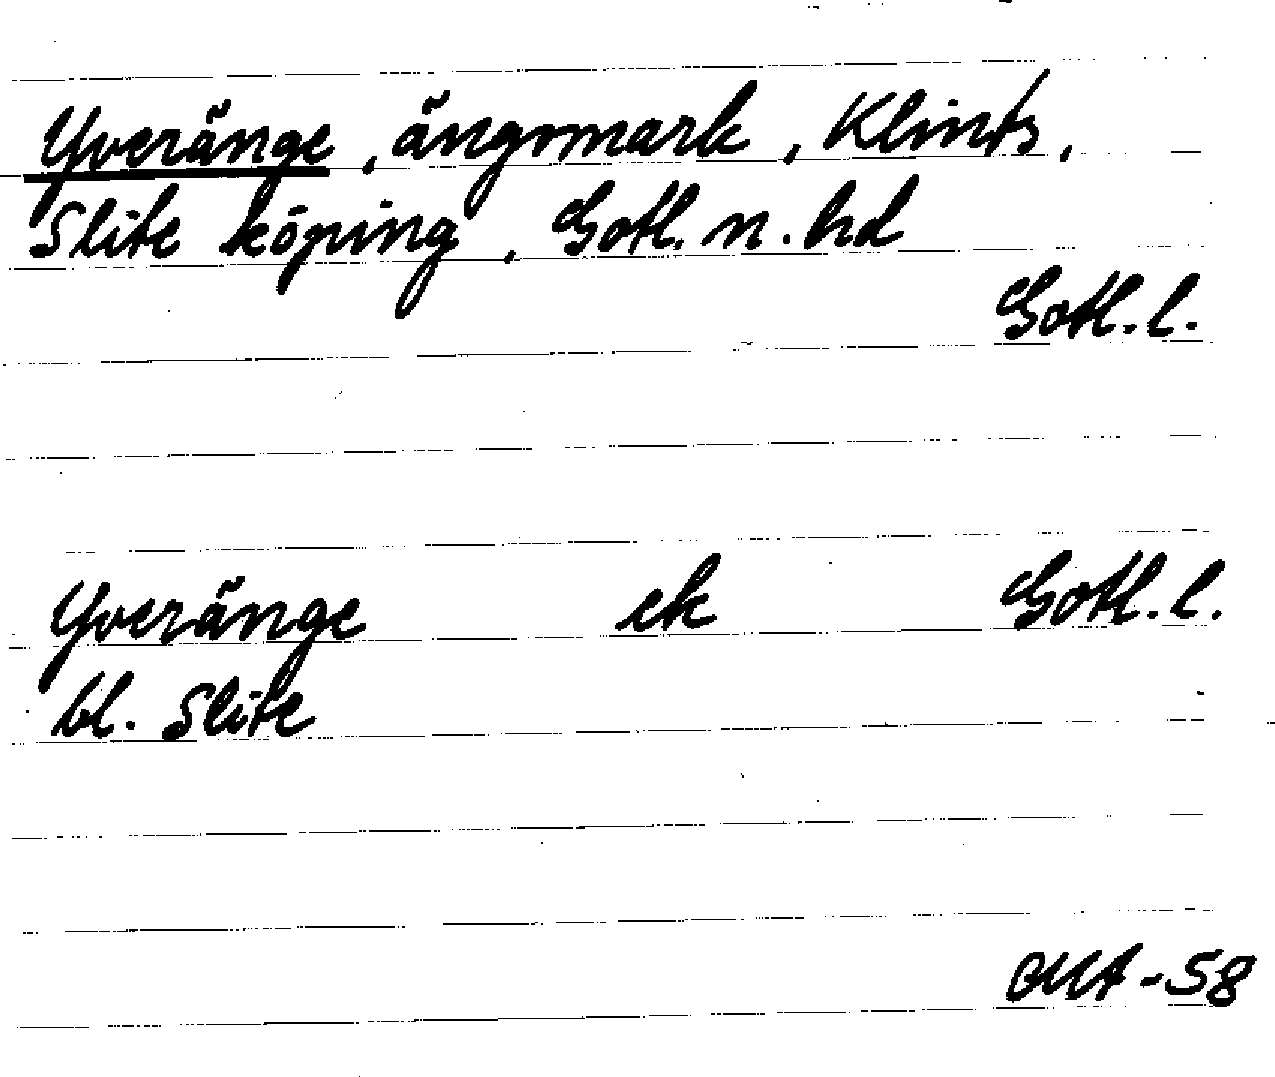 Yveränge, ängsmark, Klints,
Slite köping, Gotl. n. hd
Gotl. l.
Yveränge ek Gotl. l.
bl. Slite
OMA-58